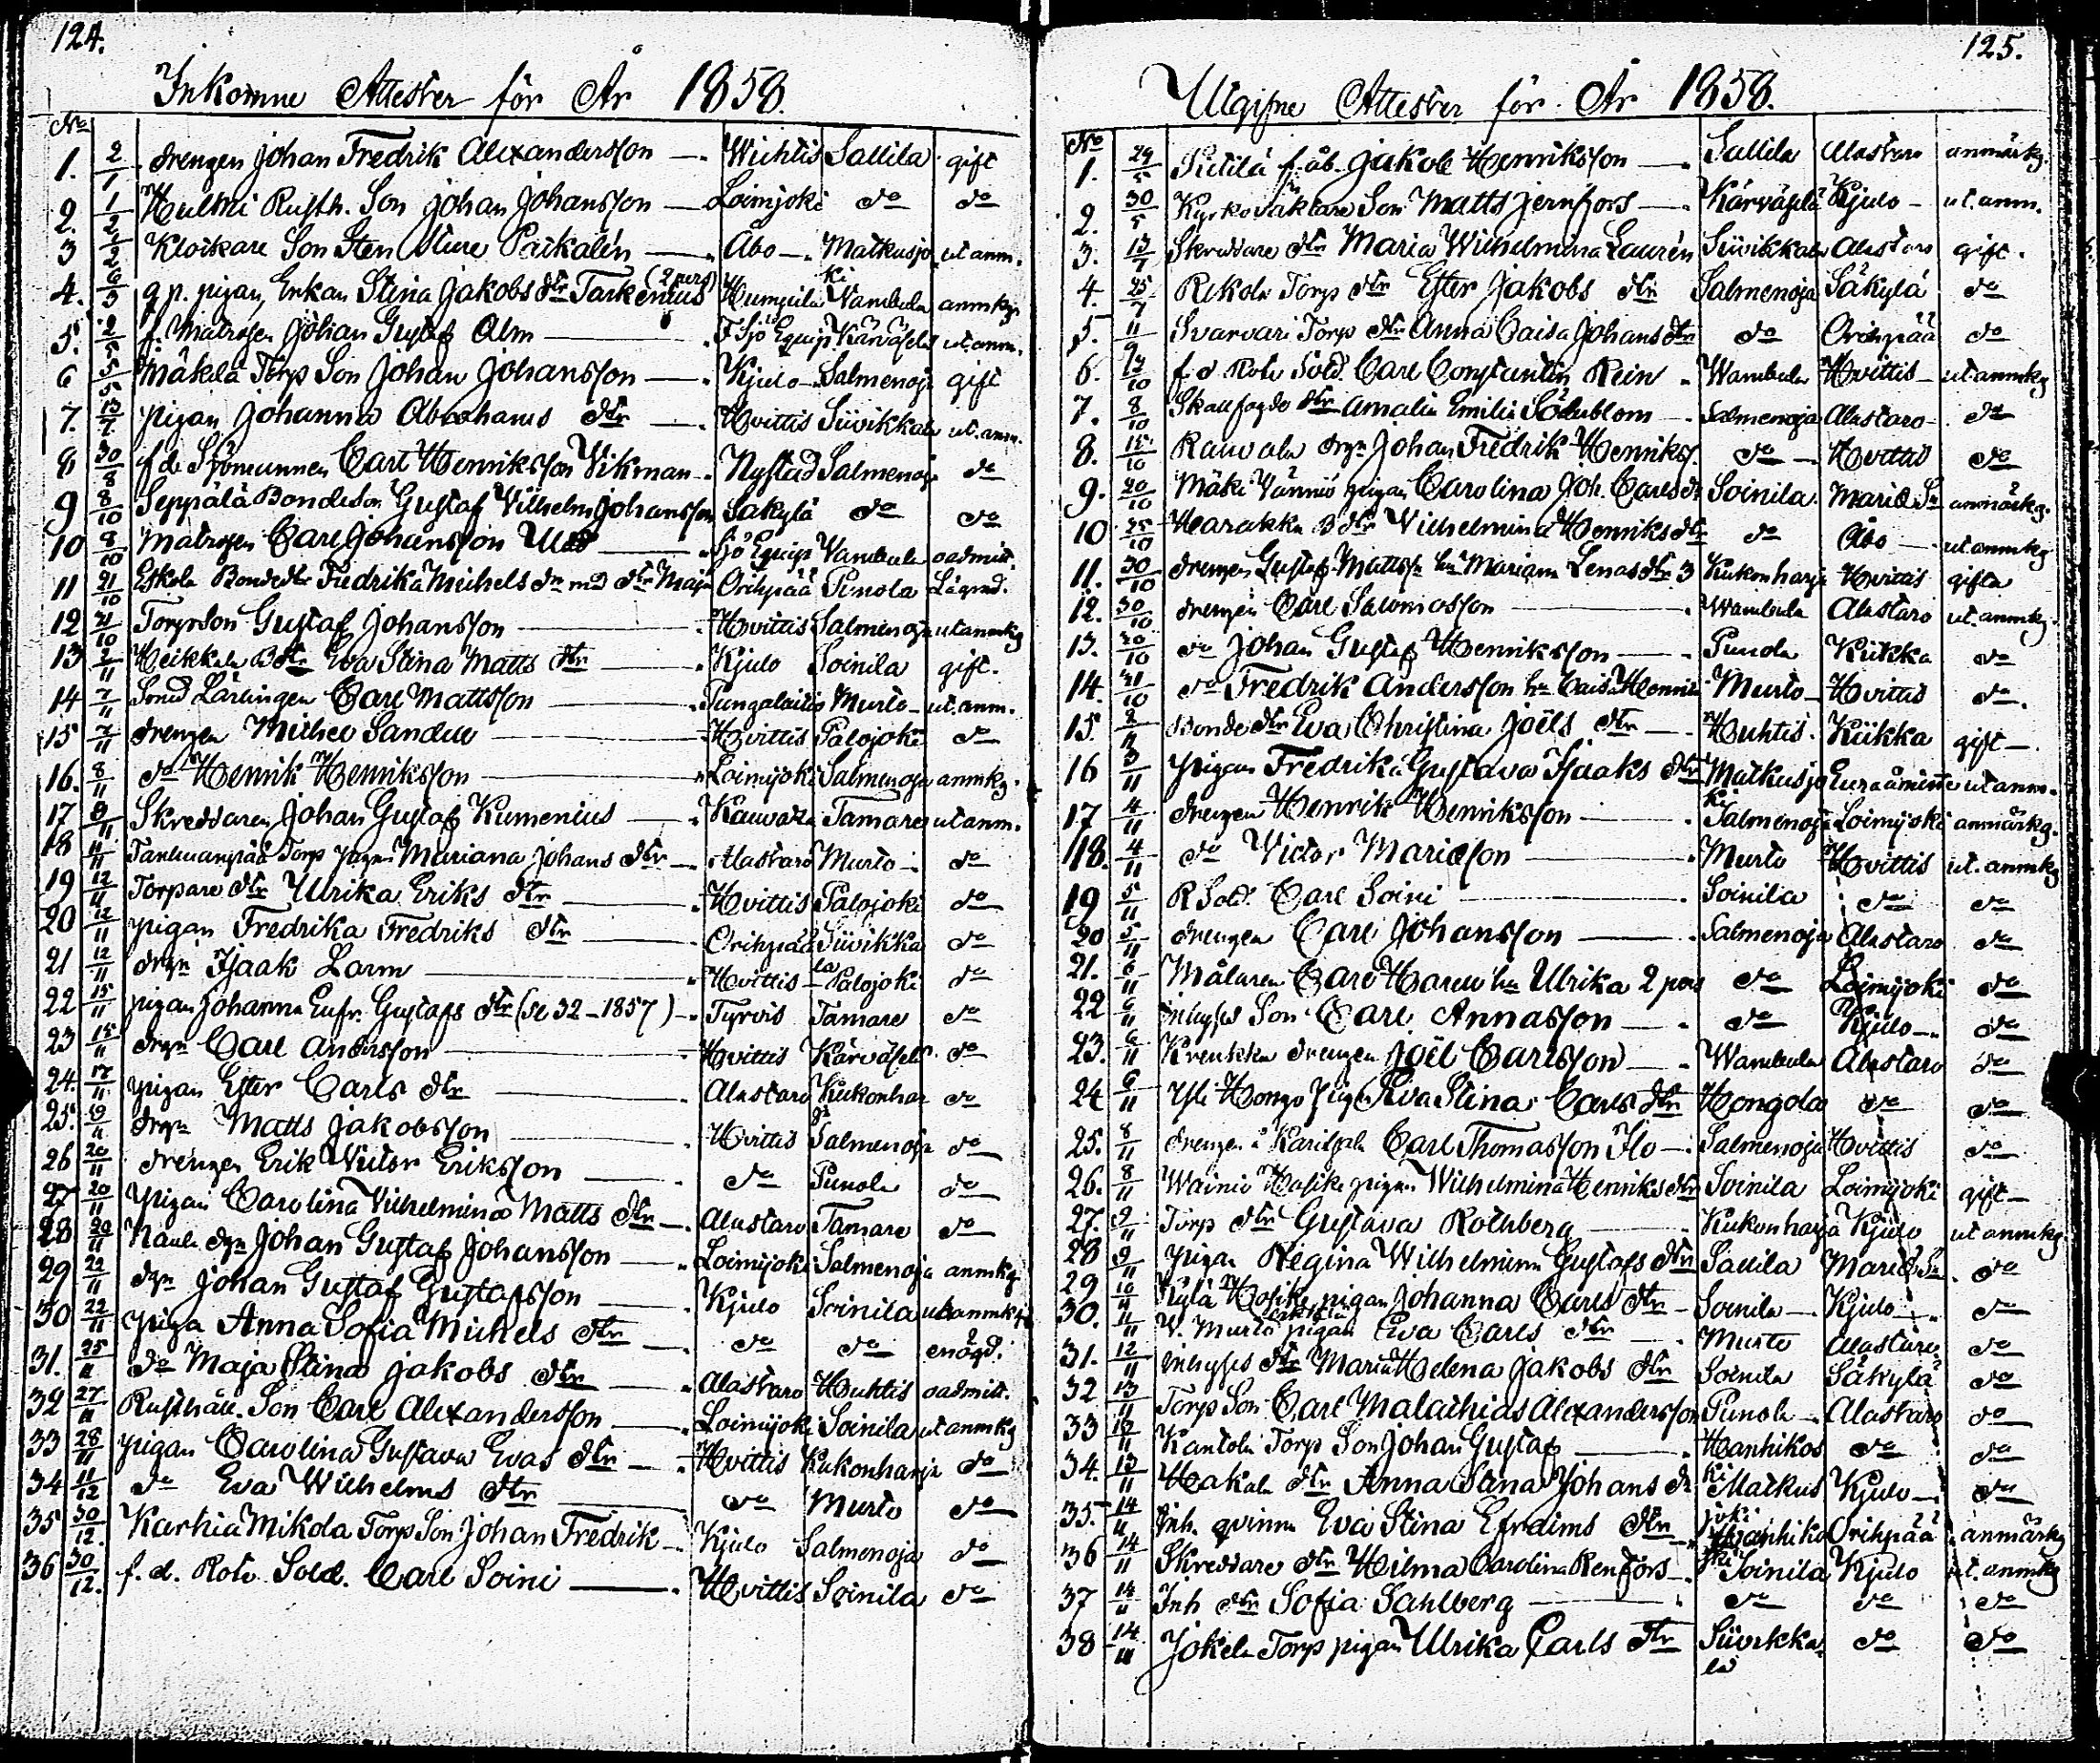 124.
Inkomne Attester för År 1858.
No
1. 2/1 drengen Johan Fredrik Alexandersson — Wichtis Sallila gift
2. 1/2 Hulmi Rusth. Son Johan Johansson — Loimjoki do do
3 2/2 Klockare Son Sten Sture Paikalén — Åbo — Matkusjoki ut anm.
4. 6/3 g p. pigan, Enkan Stina Jakobs dtr Tarkenius (2 pers) Humpila Vambula anmkg.
5. 2/5 f. Matrosen Johan Gustaf Alm — F Sjö Equip Kärväselä ut. anm.
6 5/5 Mäkelä Torp Son Johan Johansson — Kjulo — Salmenoja gift
7. 13/7 pigan Johanna Abrahams dtr — Hvittis Süvikkala ut. anm.
8 30/8 f d. Sjömannen Carl Henriksson Vikman — Nystad Salmenoja do
9 8/10 Seppälä Bondeson Gustaf Vilhelm Johansson Säkylä do do
10 8/10 Matrosen Carl Johansson — Sjö Equip Vambula oadmitt.
11 21/10 Eskola Bondedtr Fredrika Michels dr med dtr Maja Orihpää Punola Lägrad.
12 21/10 Torpsson Gustaf Johansson — Hvittis Salmenoja ut anmkg
13 2/11 Heikkala B dtr Eva Stina Matts dtr — Kjulo Soinila gift.
14 7/11 Smed Lärlingen Carl Mattsson — Pungalaitio Murto — ut. anm.
15 7/11 drengen Michel Sandell — Hvittis Palojoki do
16. 8/11 do Henrik Henriksson — Loimijoki Salmenoja anmkg.
17 8/11 Skreddaren Johan Gustaf Kumenius — Kauvatsa Tamare ut anm.
18 11/11 Tanhuanpää Torp pigan Mariana Johans dtr — Alastaro Murto — do
19 12/11 Torpare dtr Ulrika Eriks dtr — Hvittis Palojoki do
20 12/11 pigan Fredrika Fredriks dtr — Orihpää Süvikkala do
21 12/11 drgn Isaak Larm — Hvittis — Palojoki do
22 15/11 pigan Johanna Eufr. Gustafs dtr (se 32 – 1857) — Tyrvis Tamare do
23 15/11 drgn Carl Andersson — Hvittis Kärväselä do
24. 17/11 pigan Ester Carls dtr — Alastaro Kukonharja do
25. 19/11 drgn Matts Jakobsson — Hvittis Salmenoja do
26 20/11 drengen Erik Victor Eriksson — do Punola do
27 20/11 pigan Carolina Vilhelmina Matts dtr — Alastaro Tamare do
28 20/11 Naula dgn Johan Gustaf Johansson — Loimijoki Salmenoja anmkg
29 22/11 dgn Johan Gustaf Gustafsson — Kjulo Soinila ut anmkg
30 22/11 piga Anna Sofia Michels dtr — do do enögd.
31. 25/11 do Maja Stina Jakobs dtr — Alastaro Huhtis oadmitt.
32 27/11 Rusthåll. Son Carl Alexandersson — Loimijoki Soinila ut anmkg
33 28/11 pigan Carolina Gustava Evas dtr — Hvittis Kukonharja do
34 11/12 do Eva Wilhelms dtr — do Murto do
35 30/12. Karhia Mikola Torp Son Johan Fredrik — Kjulo Salmenoja do
36 30/12. f. d. Rote Sold. Carl Soini — Hvittis Soinila do
125.
Utgifne Attester för År 1858.
No
1. 29/5 Sutilä f. åb. Jakob Henriksson — Sallila Alastaro anmärkg.
2. 30/5 Kyrkovaktare Son Matts Jernfors — Kärväselä Kjulo — ut. anm.
3. 13/7 Skreddare dtr Maria Wilhelmina Laurén Süvikkala Alastaro gift.
4. 25/7 Rekola Torp dtr Ester Jakobs dtr Salmenoja Säkylä do
5. 11/9 Svarvari Torp dtr Anna Caisa Johans dtr do Orihpää do
6. 13/10 f. d Rote Sold. Carl Constantin Rein — Wambula Hvittis — ut anmkg
7. 8/10 Skallfogde dtr Amalia Emilia Söderblom — Salmenoja Alastaro — do
8. 15/10 Rauvala drgn Johan Fredrik Henrikss. do — Hvittis do
9. 20/10 Mäki Vänniö pigan Carolina Joh. Carls dr Soinila Mariæ Sn anmärkg.
10 25/10 Harakka B dtr Vilhelmina Henriks dtr do Åbo — ut anmkg
11. 30/10 drengen Gustaf Mattss. hu Mariana Lenas dtr 3 Kukonharja Hvittis gifta
12. 30/10 drengen Carl Salomosson — Wambula Alastaro ut. anmkg.
13. 30/10 do Johan Gustaf Henriksson — Punola Kiikka do
14. 31/10 do Fredrik Andersson hu Caisa Henriks Murto — Hvittis do.
15. 2/11 Bonde dtr Eva Christina Joëls dtr — Huhtis. Kiikka gift —.
16 3/11 pigan Fredrika Gustava Isaaks dtr Matkusjoki Euraåminne ut anm.
17 4/11 drengen Henrik Henriksson — Salmenoja Loimijoki anmärkg.
18. 4/11 do Victor Mariæson — Murto Hvittis ut. anmkg
19 5/11 R Sold. Carl Soini — Soinila do do
20 5/11 drengen Carl Johansson — Salmenoja Alastaro do
21. 6/11 Målaren Carl hu Ulrika 2 pers do Loimijoki do
22 6/11 inhyses Son Carl Annasson — do Kjulo — do
23. 6/11 Krenkka drengen Joël Carlsson — Wambula Alastaro do
24 6/11 Yli Hongo pigan Eva Stina Carls dtr Hongola do do
25. 8/11 drengen i Karilsala Carl Thomasson Ilo — Salmenoja Hvittis do
26. 8/11 Wainio Hasike pigan Wilhelmina Henriks dtr Soinila Loimijoki gift —
27. 9/11 Torp dtr Gustava Rothberg — Kukonharja Kjulo ut anmkg
28 9/11 pigan Regina Wilhelmina Gustafs dtr Sallila Mariæ Sn. do
29 10/11 Kylä Hosike pigan Johanna Carls dtr — Soinila — Kjulo — do
30. 11/11 V. Murto pigan Eva Carls dtr — Murto Alastaro do
31. 12/11 inhyses dtr Maria Helena Jakobs dtr Soinila Säkylä do
32 13/11 Torp Son Carl Malachias Alexandersson Punola — Alastaro do
33 13/11 Kantola Torp Son Johan Gustaf — Hanhikoski do do
34. 13/11 Hakala dtr Anna Stina Johans dr Matkusjoki Kjulo — do
35. 14/11 Inh. qvinna Eva Stina Efraims dtr — Hanhikoski Orihpää anmärkg
36 14/11 Skreddare dtr Hilma Carolina Renfors — Soinila Kjulo ut. anmkg
37 14/11 Inh dtr Sofia Sahlberg — do do do
38 14/11 Jokela Torp pigan Ulrika Carls dtr Süvikkala do do